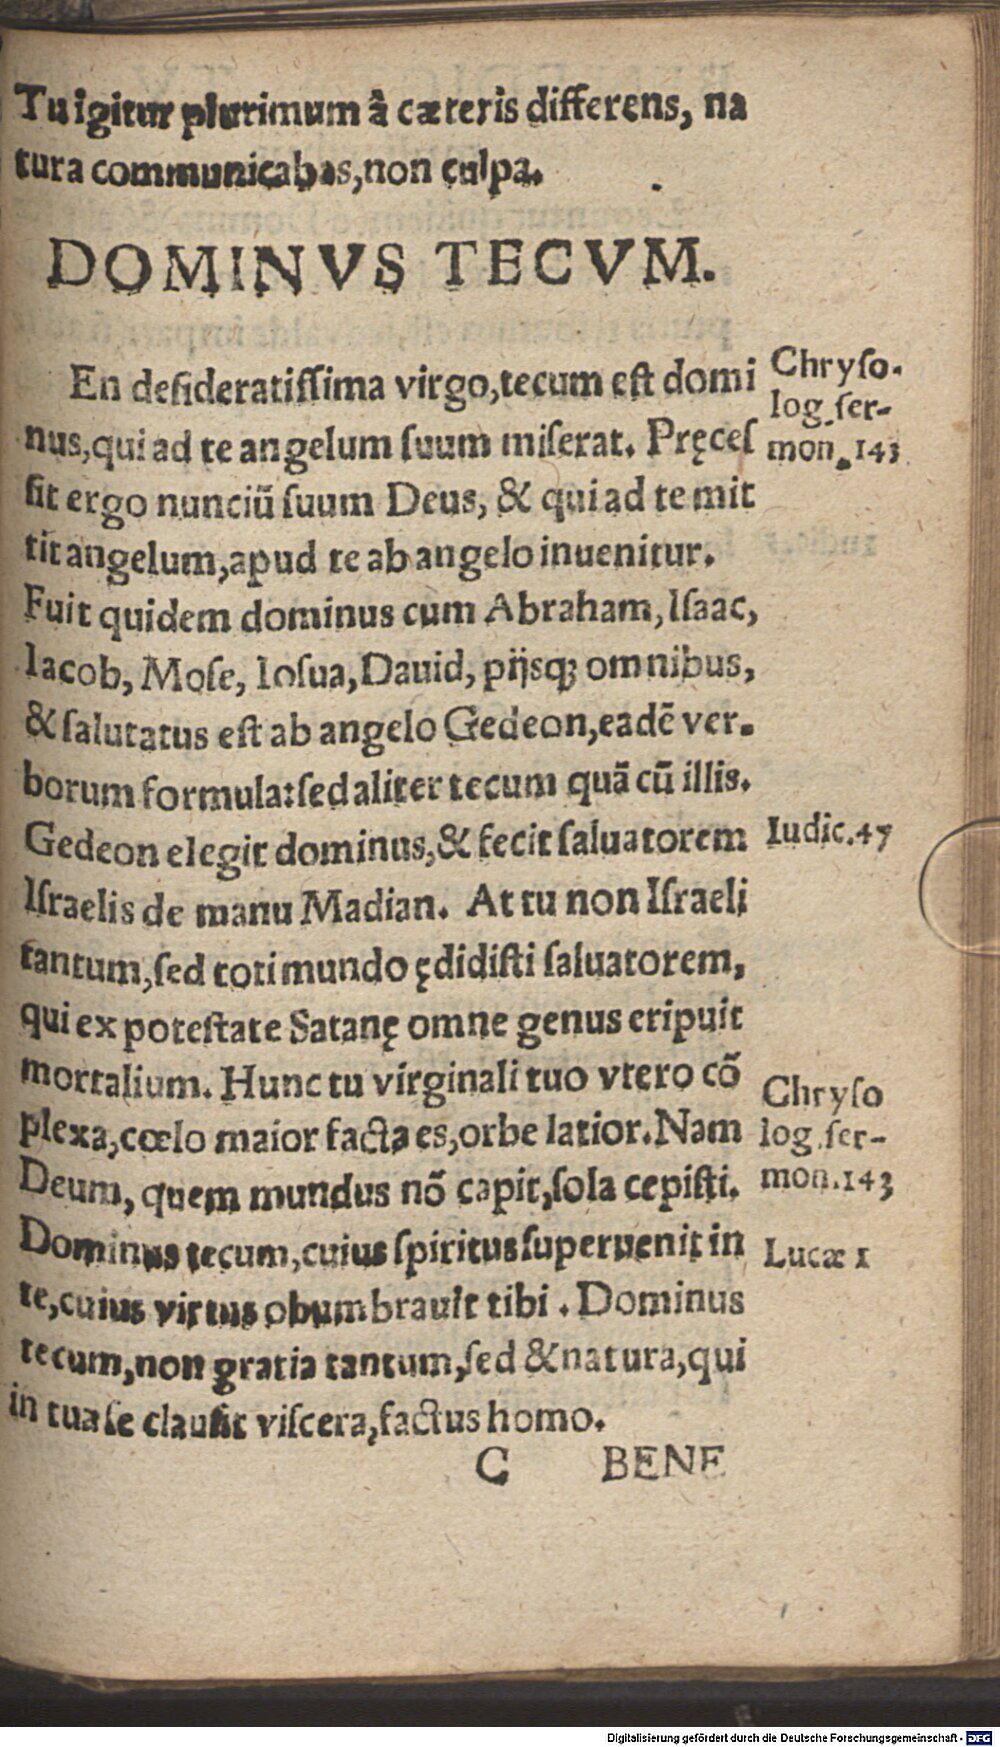 Tu igitur plurimum â cæteris differens, na
tura communicabas, non culpa.
DOMINVS TECVM.
En desideratiſſima virgo, tecum eſt domi
nus, qui ad te angelum ſuum miſerat. Pręceſ
ſit ergo nunciũ ſuum Deus, & qui ad te mit
tit angelum, apud te ab angelo inuenitur.
Fuit quidem dominus cum Abraham, Iſaac,
Iacob, Moſe, Ioſua, Dauid, pijsq; omnibus,
& ſalutatus eſt ab angelo Gedeon, eadẽ ver-
borum formula: ſed aliter tecum quã cũ illis.
Gedeon elegit dominus, & fecit ſaluatorem
Iſraelis de manu Madian. At tu non Iſraeli
tantum, ſed toti mundo ędidiſti ſaluatorem,
qui ex poteſtate Satanę omne genus eripuit
mortalium. Hunc tu virginali tuo vtero cõ
plexa, cœlo maior facta es, orbe latior. Nam
Deum, quem mundus nõ capit, ſola cepiſti.
Dominus tecum, cuius ſpiritus ſuperuenit in
te, cuius virtus obumbrauit tibi. Dominus
tecum, non gratia tantum, ſed & natura, qui
in tua ſe clauſit viſcera, factus homo.
C BENE
Chryſo-
log. ſer-
mon. 143
Iudic. 47
Chryſo
log. ſer-
mon. 143
Lucæ 1
Digitalisierung gefördert durch die Deutsche Forschungsgemeinschaft - DFG